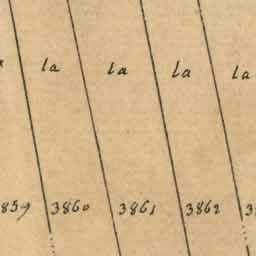 la la la la
859 3860 3861 3862